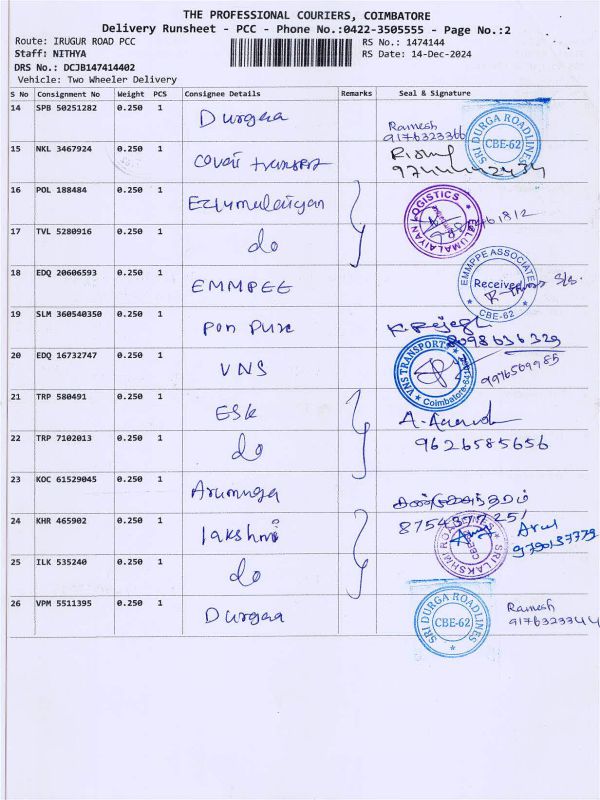 THE PROFESSIONAL COURIERS, COIMBATORE
Delivery Runsheet - PCC - Phone No.:0422-3505555 - Page No.:2
Route: IRUGUR ROAD PCC
RS No.: 1474144
Staff: NITHYA
RS Date: 14-Dec-2024
DRS No.: DCJB147414402
Vehicle: Two Wheeler Delivery
S No Consignment No Weight PCS Consignee Details Remarks Seal & Signature
14 SPB 50251282 0.250 1 Durgaa
Ramesh
9176323366
SRI DURGA ROADLINES
CBE-62
15 NKL 3467924 0.250 1 Covai transport
16 POL 188484 0.250 1 Ezhumalaiyan
ELUMALAIYAN LOGISTICS
17 TVL 5280916 0.250 1 do
18 EDQ 20606593 0.250 1 EMMPEE
EMMPPE ASSOCIATE
Received
CBE-62
19 SLM 360540350 0.250 1 Pon Pure
8098636329
20 EDQ 16732747 0.250 1 VNS
VNS TRANSPORT
Coimbatore-641
9976509985
21 TRP 580491 0.250 1 ESK
22 TRP 7102013 0.250 1 do
9626585656
23 KOC 61529045 0.250 1 Arumuga
24 KHR 465902 0.250 1 lakshmi
SRI LAKSHMI ROADLINES
Arul
9790137779
25 ILK 535240 0.250 1 do
26 VPM 5511395 0.250 1 Durgaa
SRI DURGA ROADLINES
CBE-62
Ramesh
9176323344